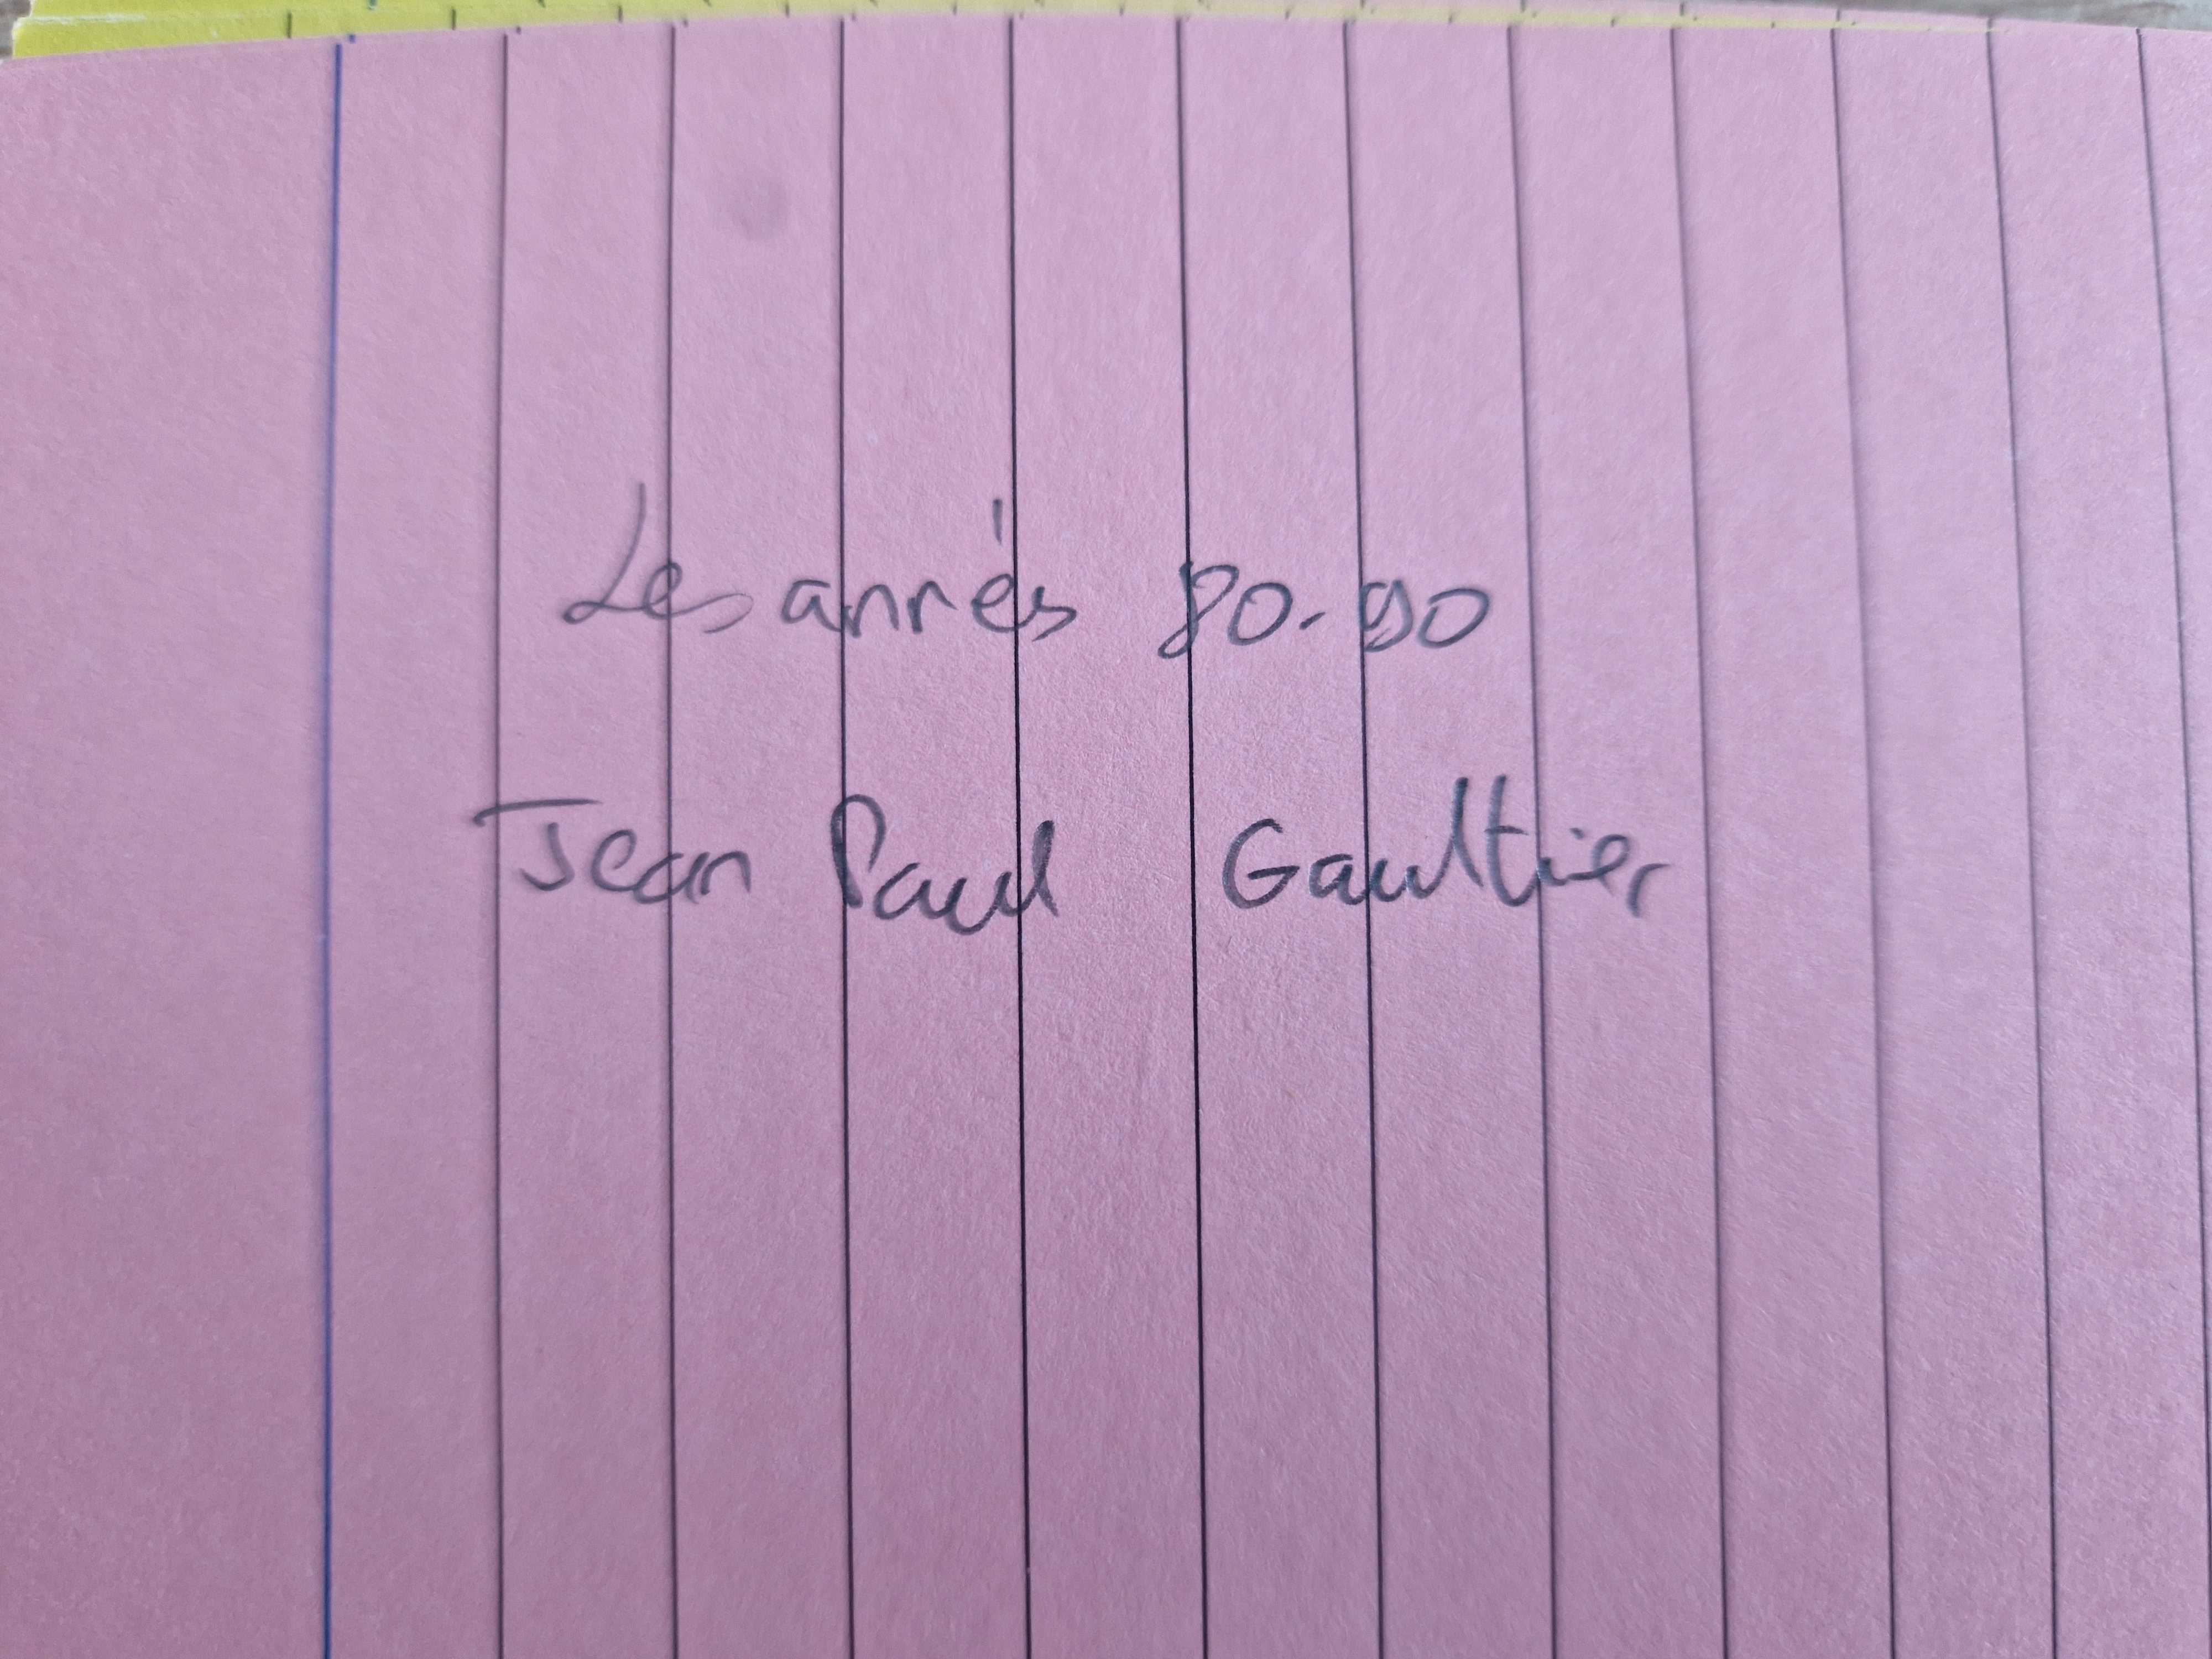 Les annés 80-90
Jean Paul Gaultier